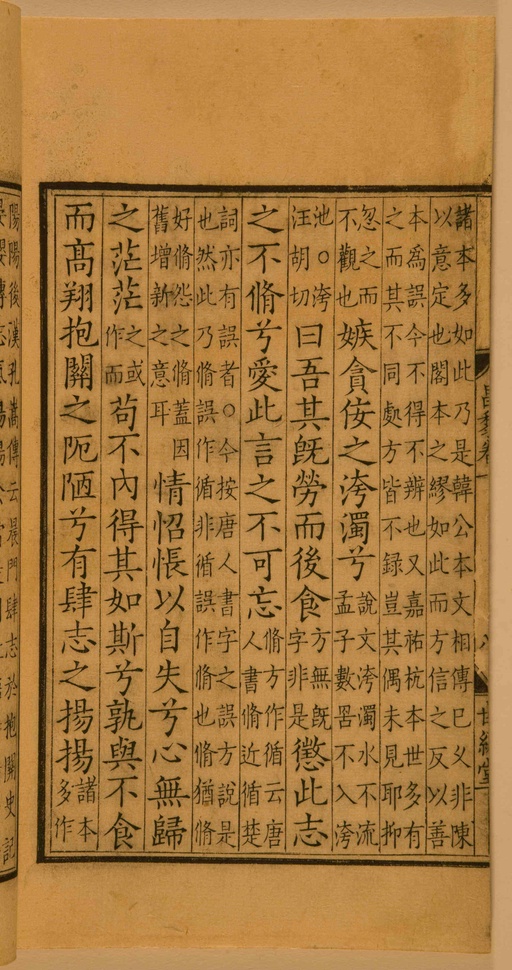 諸本多如此乃是韓公本文相傳已乆非陳
以意定也閣本之繆如此而方信之反以善
本爲誤今不得不辨也又嘉祐杭本世多有
之而其不同處方皆不録豈其偶未見耶抑
忽之而
不觀也
嫉貪佞之洿濁兮
說文洿濁水不流
孟子數罟不入洿
池○洿
汪胡切
曰吾其旣勞而後食
方無旣
字非是
懲此志
之不脩兮愛此言之不可忘
脩方作循云唐
人書脩近循楚
詞亦有誤者○今按唐人書字之誤方說是
也然此乃脩誤作循非循誤作脩也脩猶脩
好脩怨之脩蓋因
舊增新之意耳
情怊悵以自失兮心無歸
之茫茫
之或
作而
苟不內得其如斯兮孰與不食
而高翔抱關之阨陋兮有肆志之揚揚
諸本
多作
陽陽後漢孔嵩傳云晨門肆志於抱關史記